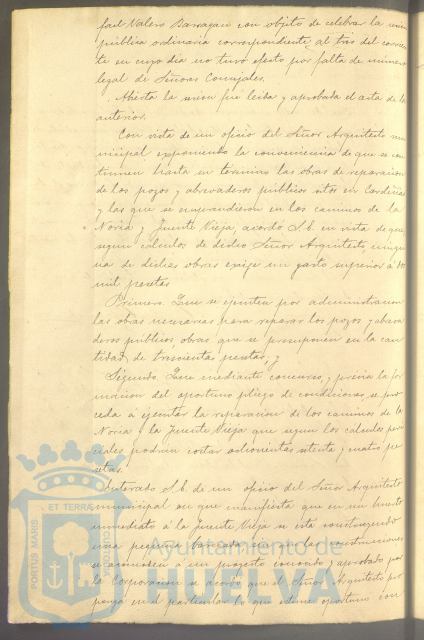 fael Valero Barragan con objeto de celebrar la sesion
pública ordinaria correspondiente al tres del corrien
te en cuyo dia no tuvo efecto por falta de numero
legal de Señores Concejales.
Abierta la sesion fué leida y aprobada el acta de la
anterior.
Con vista de un oficio del Señor Arquitecto mu
nicipal exponiendo la conveniencia de que se con
tinuen hasta su termino las obras de reparacion
de los pozos y abrevaderos públicos sitos en Cardeñas
y las que se emprendieron en los caminos de la
Noria y Fuente Vieja, acordó S.E. en vista de que
segun calculos de dicho Señor Arquitecto ningu
na de dichas obras exige un gasto superior á dos
mil pesetas
Primero. Que se ejecuten por administracion
las obras necesarias para reparar los pozos y abreva
deros públicos, obras que se presuponen en la can
tidad de trescientas pesetas, y
Segundo. Que mediante concurso, y previa la for
macion del oportuno pliego de condiciones, se pro
ceda á ejecutar la reparacion de los caminos de la
Noria y la Fuente Vieja que segun los cálculos par
ciales podran costar setenta y cuatro pe
setas.
Enterado S.E. de un oficio del Señor Arquitecto
municipal en que manifiesta que en un huerto
inmediato á la Fuente Vieja se está construyendo
una pequeña sin que las construcciones
se acomoden á un proyecto conocido y aprobado por
la Corporacion se acordó que el Señor Arquitecto pro
ponga en el particular lo que estime oportuno con
PORTUS MARIS ET TERRAE CUSTODIA
Ayuntamiento de
HUELVA